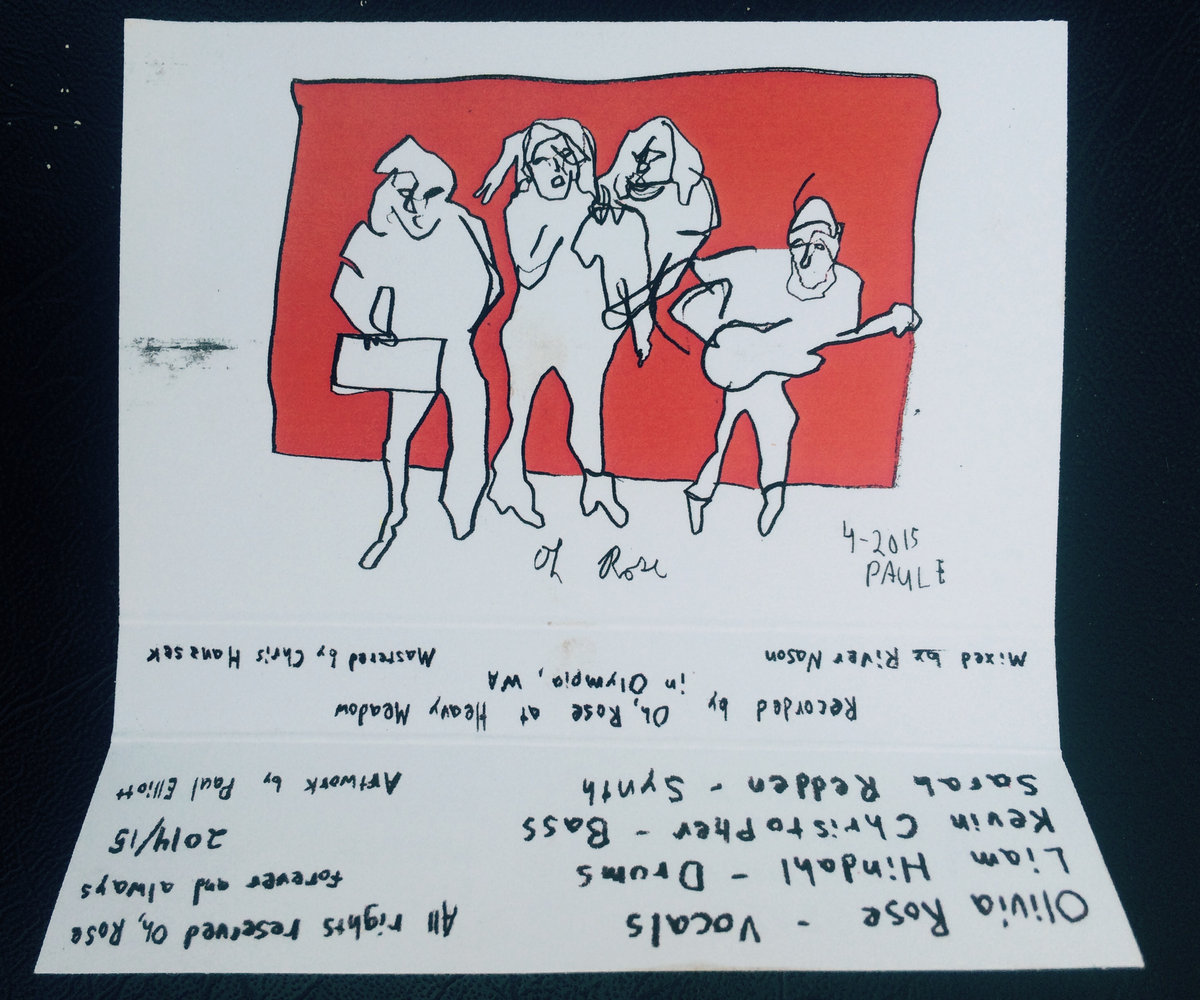 Oh Rose
4-2015
PAUL E
Mixed by River Nason
Mastered by Chris Hanzsek
Recorded by Oh, Rose at Heavy Meadow
in Olympia, WA
Olivia Rose - Vocals
Liam Hindahl - Drums
Kevin Christopher - Bass
Sarah Redden - Synth
All rights reserved Oh, Rose
forever and always
2014/15
Artwork by Paul Elliott